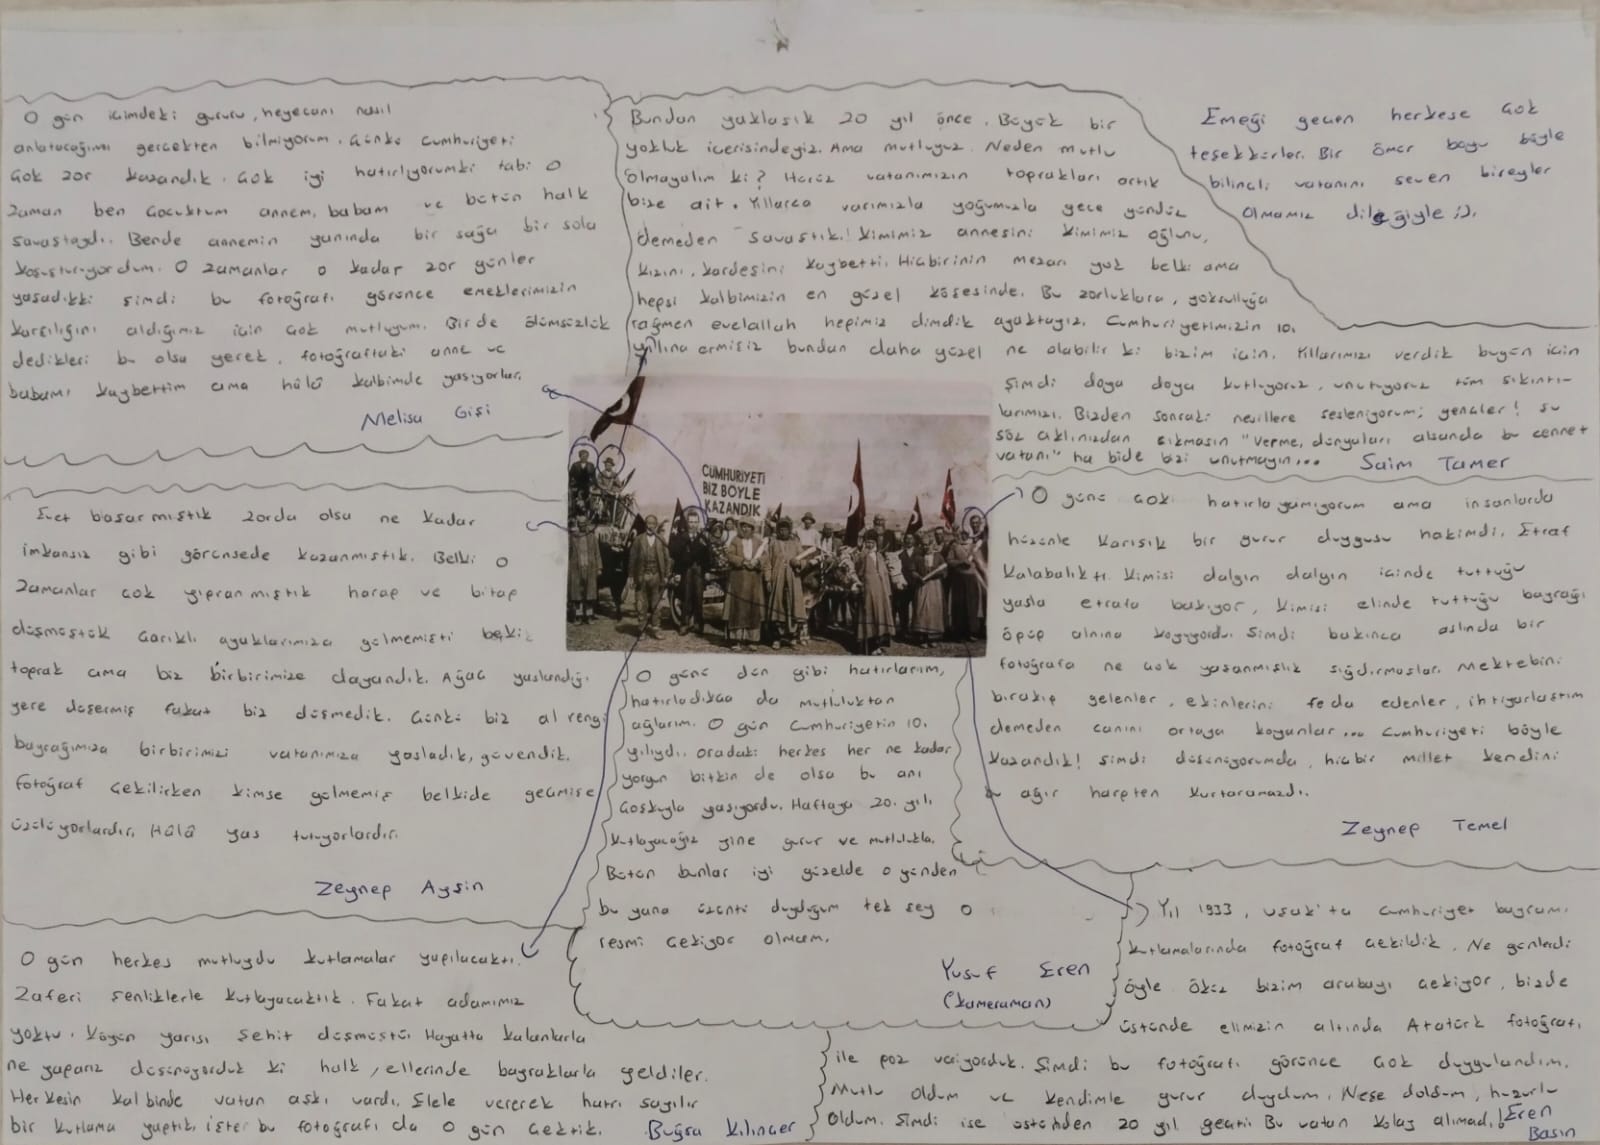 O gün içimdeki gururu, heyecanı nasıl
anlatacağımı gerçekten bilmiyorum. Çünkü Cumhuriyeti
çok zor kazandık. Çok iyi hatırlıyorumki tabi o
zaman ben çocuktum annem, babam ve bütün halk
savaştaydı. Bende annemin yanında bir sağa bir sola
koşuşturuyordum. O zamanlar o kadar zor günler
yaşadıkki şimdi bu fotoğrafı görünce emeklerimizin
karşılığını aldığımız için çok mutluyum. Birde ölümsüzlük
dedikleri bu olsa gerek, fotoğraftaki anne ve
babamı kaybettim ama hâlâ kalbimde yaşıyorlar.
Melisa Gişi
Bundan yaklaşık 20 yıl önce. Büyük bir
yokluk içerisindeyiz. Ama mutluyuz. Neden mutlu
olmayalım ki? Henüz vatanımızın toprakları artık
bize ait. Yıllarca varımızla yoğumuzla gece gündüz
demeden savaştık! Kimimiz annesini kimimiz oğlunu,
kızını, kardeşini kaybetti. Hiçbirinin mezarı yok belki ama
hepsi kalbimizin en güzel köşesinde. Bu zorluklara, yoksulluğa
rağmen evelallah hepimiz dimdik ayaktayız. Cumhuriyetimizin 10.
yılına ermişiz bundan daha güzel ne olabilir ki bizim için. Yıllarımızı verdik bugün için
Şimdi doya doya kutluyoruz, unutuyoruz tüm sıkıntı-
larımızı. Bizden sonraki nesillere sesleniyorum; gençler! şu
söz aklınızdan çıkmasın "Verme, dünyaları alsanda bu cennet
vatanı" ha bide bizi unutmayın...
Saim Tamer
Emeği geçen herkese çok
teşekkürler. Bir ömür boyu böyle
bilinçli vatanını seven bireyler
olmamız dileğiyle :).
CUMHURİYETİ
BİZ BÖYLE
KAZANDIK
Evet başarmıştık zorda olsa ne kadar
imkansız gibi görünsede kazanmıştık. Belki o
zamanlar çok yıpranmıştık harap ve bitap
düşmüştük çarıklı ayaklarımıza gülmemişti belki
toprak ama biz birbirimize dayandık. Ağaç yaslandığı
yere düşermiş fakat biz düşmedik. Çünkü biz al rengi
bayrağımıza birbirimizi vatanımıza yasladık, güvendik.
Fotoğraf çekilirken kimse gülmemiş belkide geçmişe
üzülüyorlardır. Hâlâ yas tutuyorlardır.
Zeynep Ayşin
O günü çok hatırlayamıyorum ama insanlarda
hüzünle karışık bir gurur duygusu hakimdi. Etraf
kalabalıktı. Kimisi dalgın dalgın içinde tuttuğu
yasla etrafa bakıyor, kimisi elinde tuttuğu bayrağı
öpüp alnına koyuyordu. Şimdi bakınca aslında bir
fotoğrafa ne çok yaşanmışlık sığdırmışlar. Mektebini
bırakıp gelenler, ekinlerini feda edenler, ihtiyarlaştım
demeden canını ortaya koyanlar... Cumhuriyeti böyle
kazandık! Şimdi düşünüyorumda, hiçbir millet kendini
bu ağır harpten kurtaramazdı.
Zeynep Temel
O günü dün gibi hatırlarım,
hatırladıkça da mutluluktan
ağlarım. O gün Cumhuriyetin 10.
yılıydı. oradaki herkes her ne kadar
yorgun bitkin de olsa bu anı
coşkuyla yaşıyordu. Haftaya 20. yılı
kutlayacağız yine gurur ve mutlulukla.
Bütün bunlar iyi güzelde o günden
bu yana üzüntü duyduğum tek şey o
resmi çekiyor olmam.
Yusuf Eren
(kameraman)
O gün herkes mutluydu kutlamalar yapılacaktı.
Zaferi şenliklerle kutlayacaktık. Fakat adamımız
yoktu. Köyün yarısı şehit düşmüştü. Hayatta kalanlarla
ne yaparız düşünüyorduk ki halk, ellerinde bayraklarla geldiler.
Herkesin kalbinde vatan aşkı vardı. Elele vererek hatrı sayılır
bir kutlama yaptık. işte bu fotoğrafı da o gün çektik.
Buğra Kılınçer
Yıl 1933, Uşak'ta Cumhuriyet bayramı
kutlamalarında fotoğraf çekildik. Ne günlerdi
öyle öküz bizim arabayı çekiyor, bizde
üstünde elimizin altında Atatürk fotoğrafı
ile poz veriyorduk. Şimdi bu fotoğrafı görünce çok duygulandım.
Mutlu oldum ve kendimle gurur duydum. Neşe doldum, huzurlu
oldum. Şimdi ise üstünden 20 yıl geçti. Bu vatan kolay alınmadı!
Eren
Basın